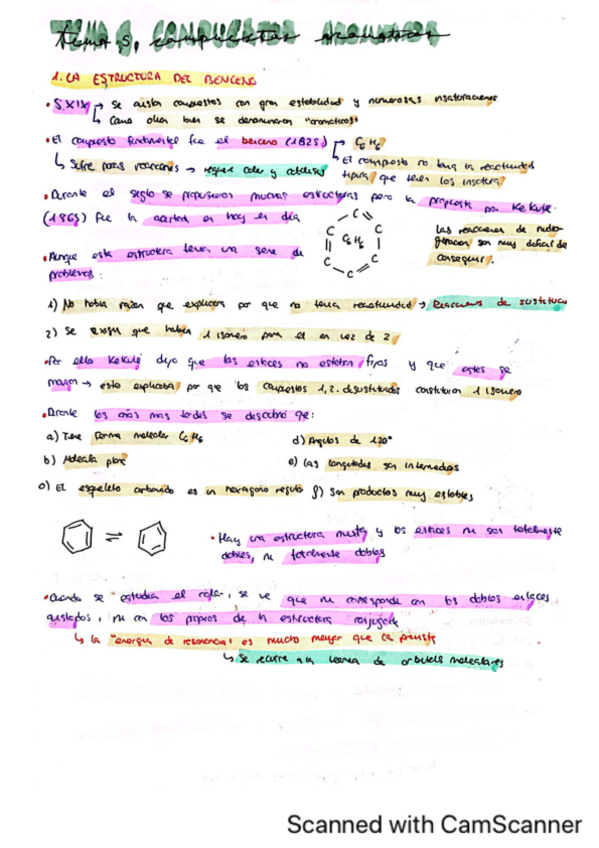 tema 5. compuestos aromáticos
1. LA ESTRUCTURA DEL BENCENO
• S. XIX → Se aislan compuestos con gran estabilidad y numerosas insaturaciones
Como olian bien se denominaron "aromáticos"
• El compuesto fundamental fue el benceno (1825) C6H6
↳ Sufre pocas reacciones → requiere calor y catalisis
El compuesto no tenia la reactividad
tipica que tenian los insatura
• Durante el siglo se propusieron muchas estructuras pero la propuesta por Kekulé
(1865) fue la aceptada en hoy en dia
C C C6H6 C C C C
Las reacciones de hidro-
genacion son muy dificil de
conseguir.
• Aunque esta estructura tenia una serie de
problemas:
1) No habia razon que explicara por que no tenia reactividad → Reacciones de sustitucion
2) Se that habia 1 isomero para el en vez de 2
• Por ello Kekulé dijo que los enlaces no estaban fijos y que estos se
movian → esto explicaba por que los compuestos 1,2-disustituidos constituian 1 isomero
• Durante los años mas tardes se descubrió que:
a) Tiene forma molecular C6H6
d) Angulos de 120°
b) Molecula plana
e) Las longitudes son intermedias
c) El esqueleto carbonado es un hexagono regular
f) Son productos muy estables
⇌
• Hay una estructura mixta y los enlaces ni son totalmente
dobles, ni totalmente dobles
• Cuando se estudia el calor, se ve que no corresponde con los dobles enlaces
aislados, ni con los propios de la estructura conjugada
↳ la "energia de resonancia" es mucho mayor que la prevista
↳ Se recurre a la teoria de orbitales moleculares
Scanned with CamScanner